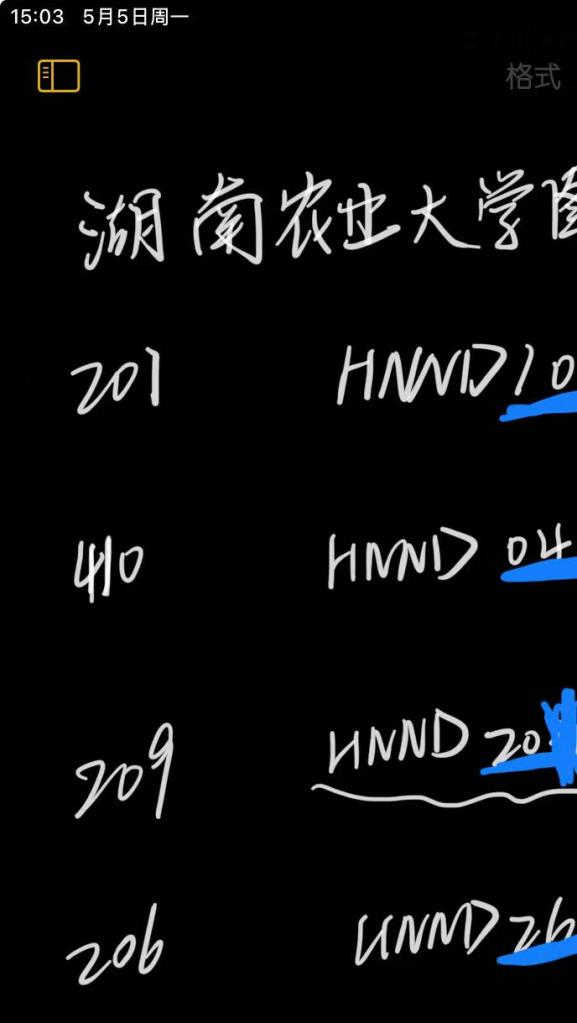 15:03 5月5日周一
格式
湖南农业大学
201 HNND10
410 HNND 04
209 HNND 20
206 HNND 26